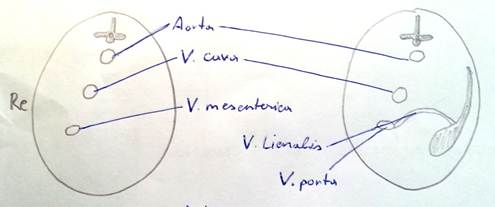 Aorta
V. cava
Re
V. mesenterica
V. Lienalis
V. porta